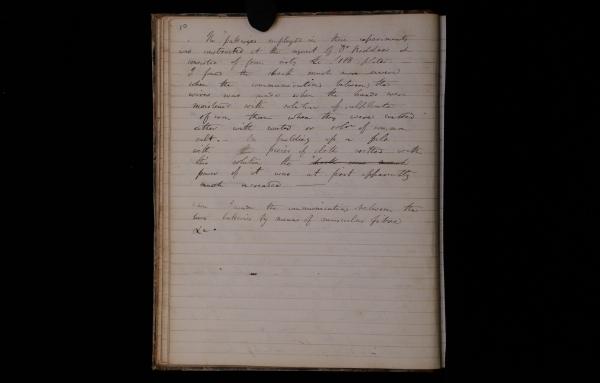 10
The batteries employed in these experiments
was constructed at the request of Dr Beddoes &
consisted of four sixty &c 108 plates —
I found the shock much more severe
when the communication between the
wires was made when the hands were
moistened with solution of sulphate
of iron than when they were wetted
either with water or solon of common
salt. — In building up a pile
with the pieces of cloth wetted with
this solution the shock was much
power of it was at first apparently
much increased —
made the communication between the
two batteries by means of muscular fibre
&c.